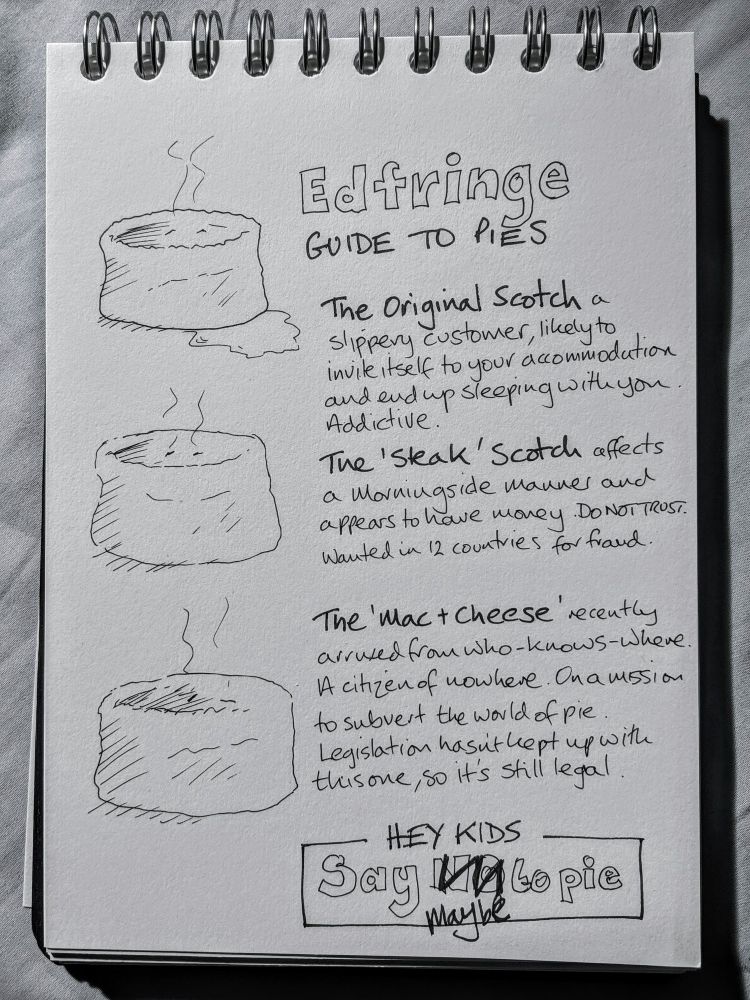 Edfringe
GUIDE TO PIES
The Original Scotch a
slippery customer, likely to
invite itself to your accommodation
and end up sleeping with you.
Addictive.
The 'Steak' Scotch affects
a Morningside manner and
appears to have money. DO NOT TRUST.
Wanted in 12 countries for fraud.
The 'Mac + Cheese' recently
arrived from who-knows-where.
A citizen of nowhere. On a mission
to subvert the world of pie.
Legislation hasn't kept up with
this one, so it's still legal.
HEY KIDS
Say to pie
maybe